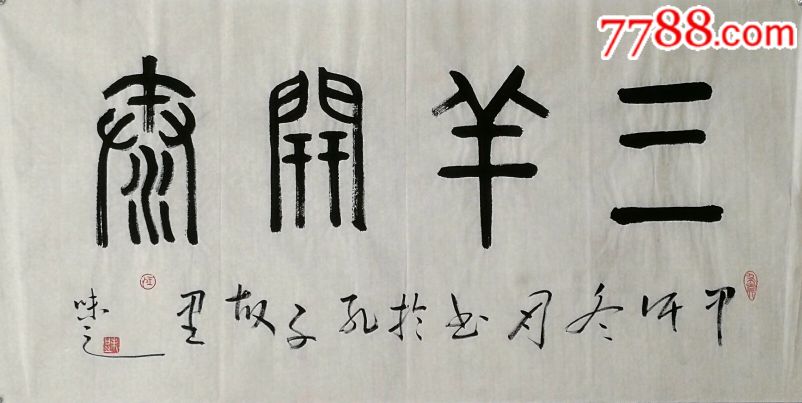 7788.com
三羊開泰
甲午冬月书於孔子故里